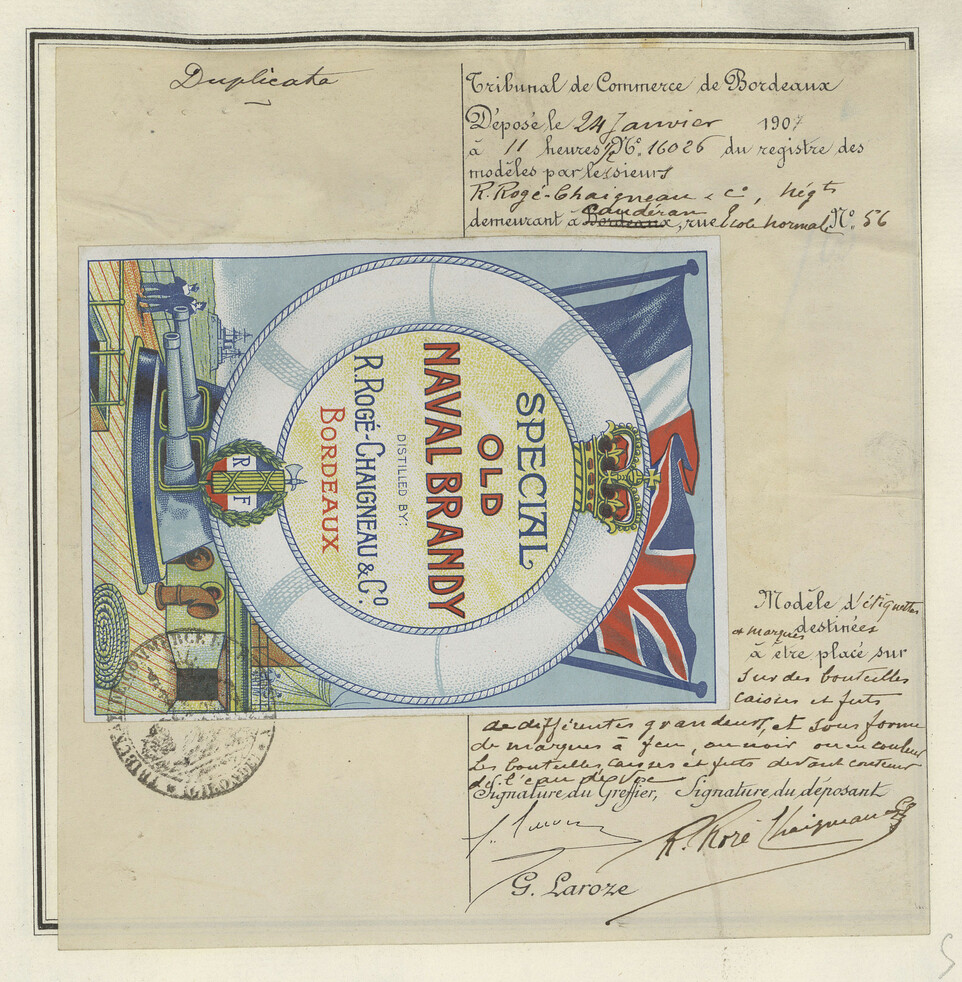 Duplicata
Tribunal de Commerce de Bordeaux
Déposé, le 24 Janvier 1907
à 11 heures ½ Nº. 16026 du registre des
modèles par les sieurs
R. Rogé-Chaigneau & Cº, Négts
demeurant à Bordeaux, Caudéran rue Ecole Normale Nº. 56
SPECIAL
OLD
NAVAL BRANDY
DISTILLED BY:
R. ROGÉ-CHAIGNEAU & Cº.
BORDEAUX
R F
Modèle d'étiquettes
et marques destinées
à être placé sur
sur des bouteilles
caisses et futs
de différentes grandeurs, et sous forme
de marques à feu, au noir ou en couleur
Les bouteilles, caisses et futs devant contenir
de l'eau de vie
Signature du Greffier, Signature du déposant
R. Rogé Chaigneau & Cº
G. Laroze
TRIBUNAL DE COMMERCE